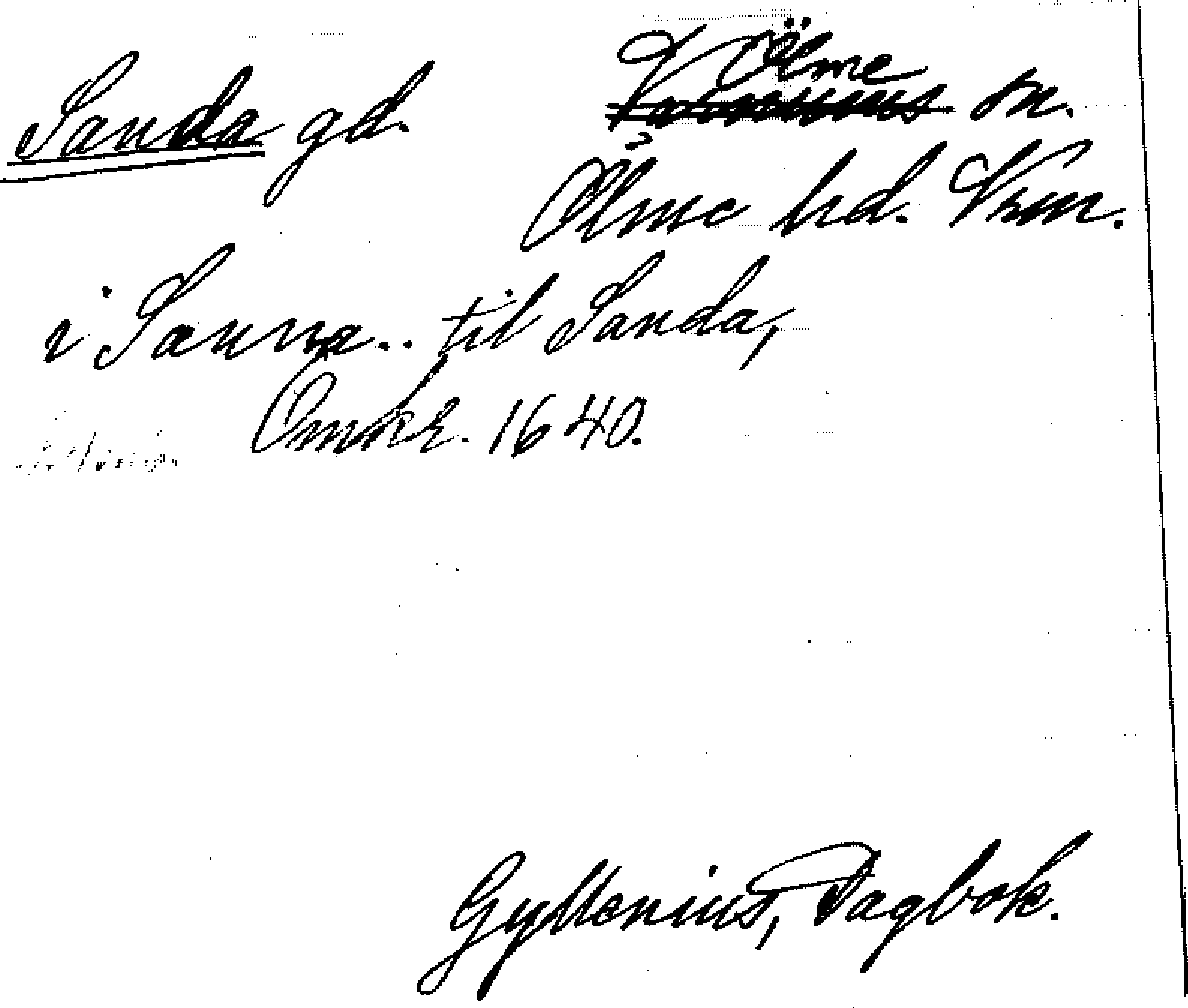 Sanda gd. Ölme sn.
Ölme hd. Vrm.
i Sanna.. til Sanda,
Omkr. 1640.
Gyllenius, Dagbok.